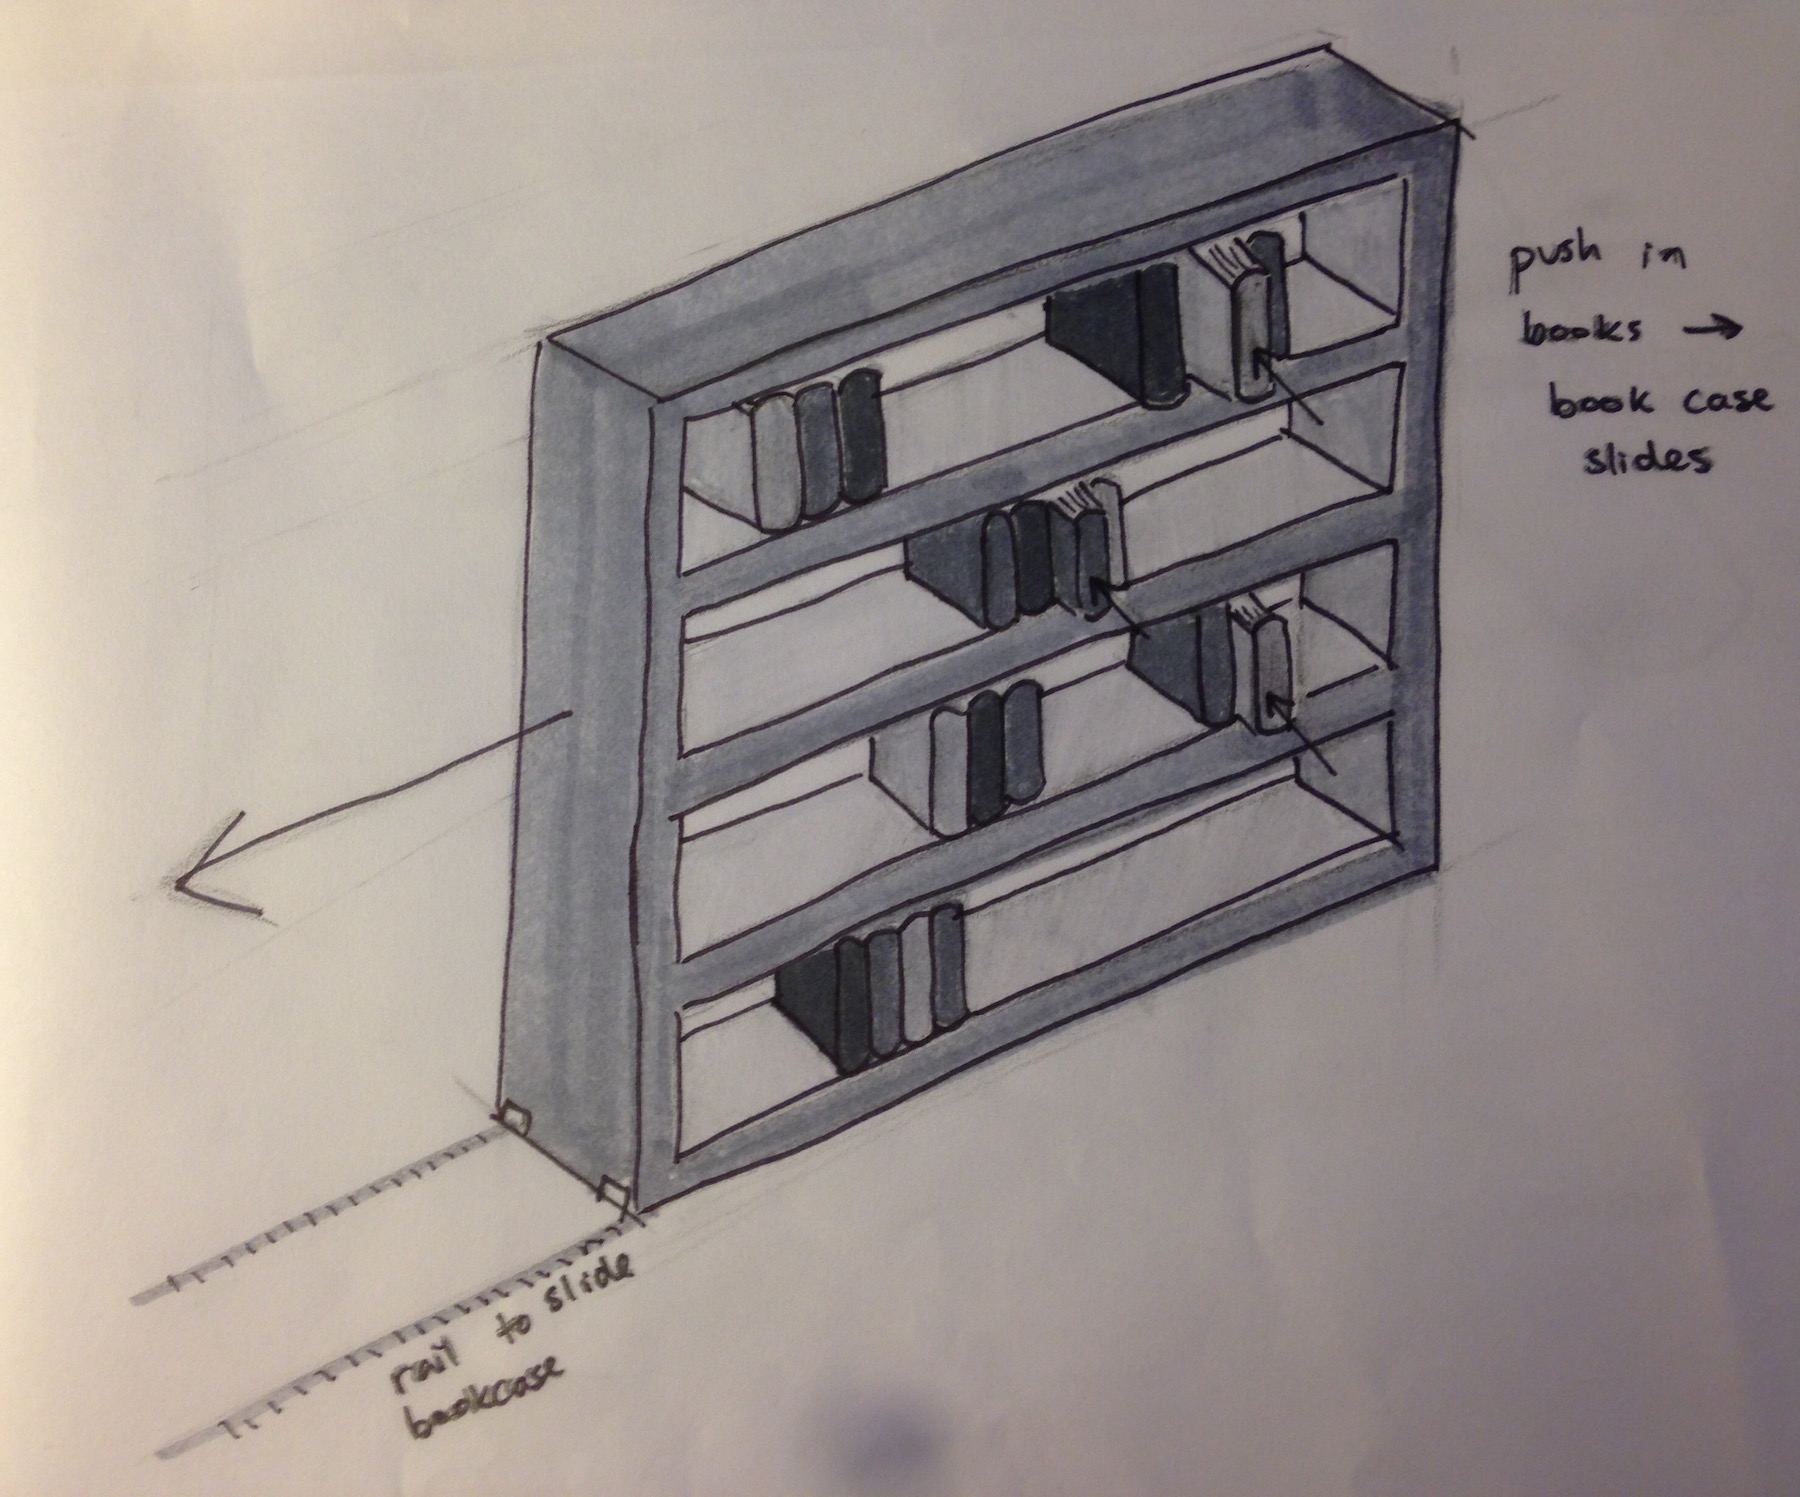 push in
books →
book case
slides
rail to slide
bookcase